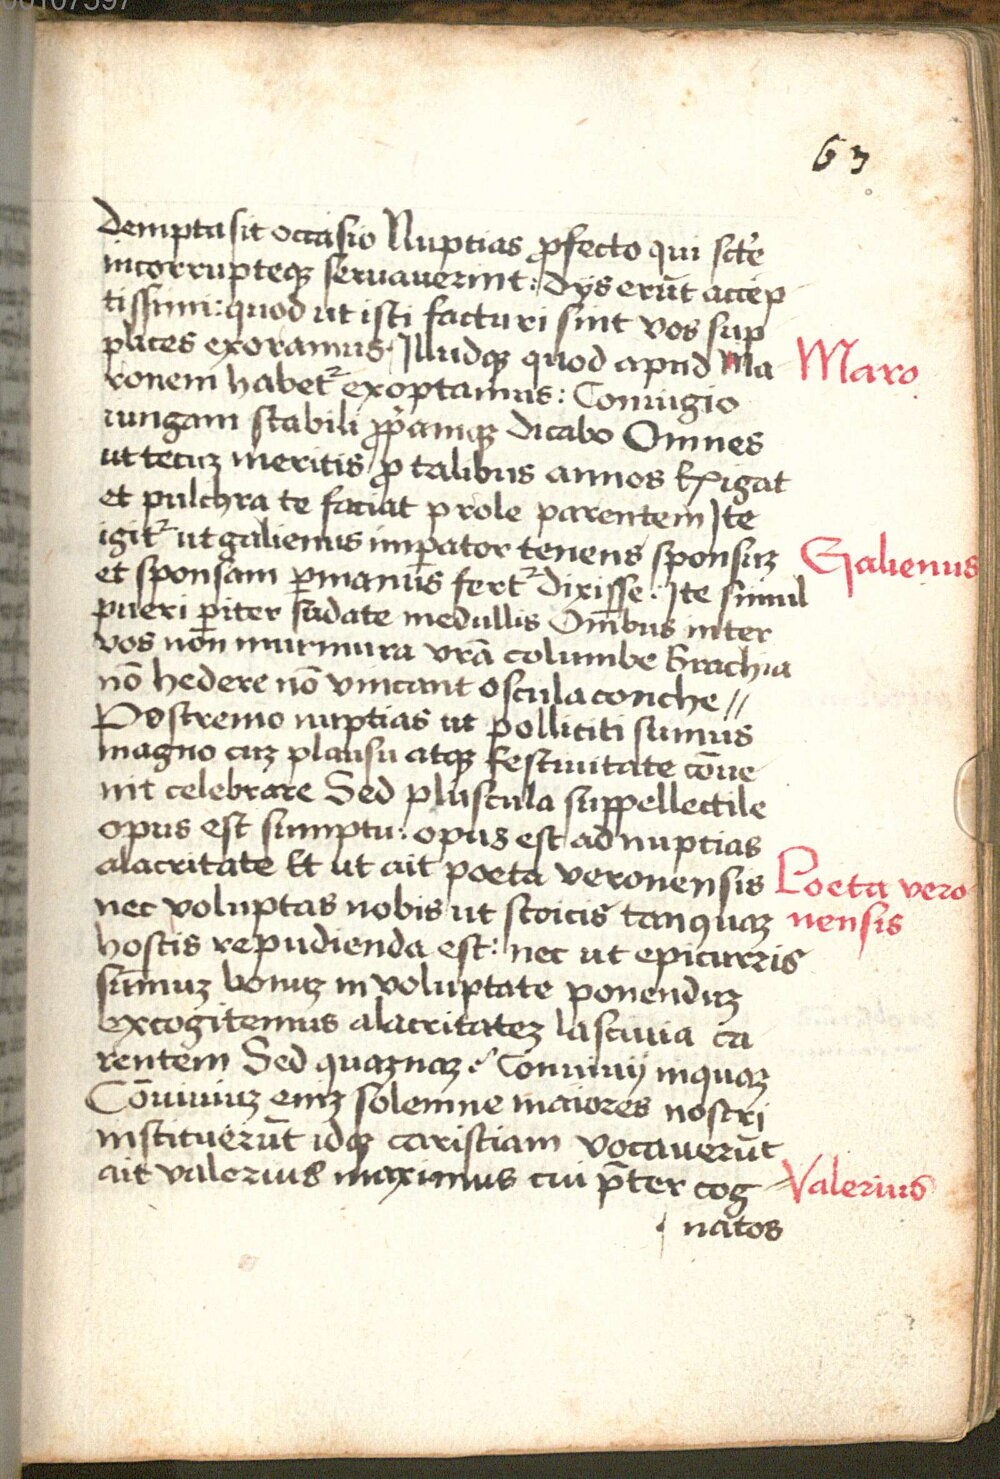 00107597
63
dempta sit occasio Nuptias ꝓfecto qui scte̛
incorrupteqꝫ servaverint: dijs erūt accep
tissimi: quod ut isti facturi sint vos sup
plices exoramus. Illudqꝫ quod apud Ma
Maro
ronem habet᷑ exoptamus: Coniugio
iungam stabili ꝓp̛amqꝫ dicabo Omnes
ut tecuꝫ meritis ꝓ talibus annos Exigat
et pulchra te faciat prole parentem Ite
igit᷑ ut galienus imꝑator tenens sponsuꝫ
Galienus
et sponsam ꝑ manus fert᷑ dixisse. Ite simul
pueri ꝑiter sūdate medullis Om̄bus inter
vos non murmura vr̄a columbe Brachia
nō hedere nō vincant oscula conche //
Postremo nuptias ut polliciti sumus
magno cuꝫ plausu atqꝫ festivitate cōue
nit celebrare Sed pluscula suppellectile
opus est sumptu: opus est ad nuptias
alacritate Et ut ait poeta veronensis
Poeta vero
nec voluptas nobis ut stoicis tanquaꝫ
nensis
hostis repudienda est: nec ut epicureis
sūmuꝫ bonuꝫ in voluptate ponenduꝫ
excogitemus alacritateꝫ lascivia ca
rentem Sed quaꝫnaꝫ? Convivij inquaꝫ
Cōviviuꝫ eniꝫ solemne maiores nostri
instituerūt idqꝫ caristiam vocaverūt
ait valerius maximus cui p̄ter cog
Valerius
natos